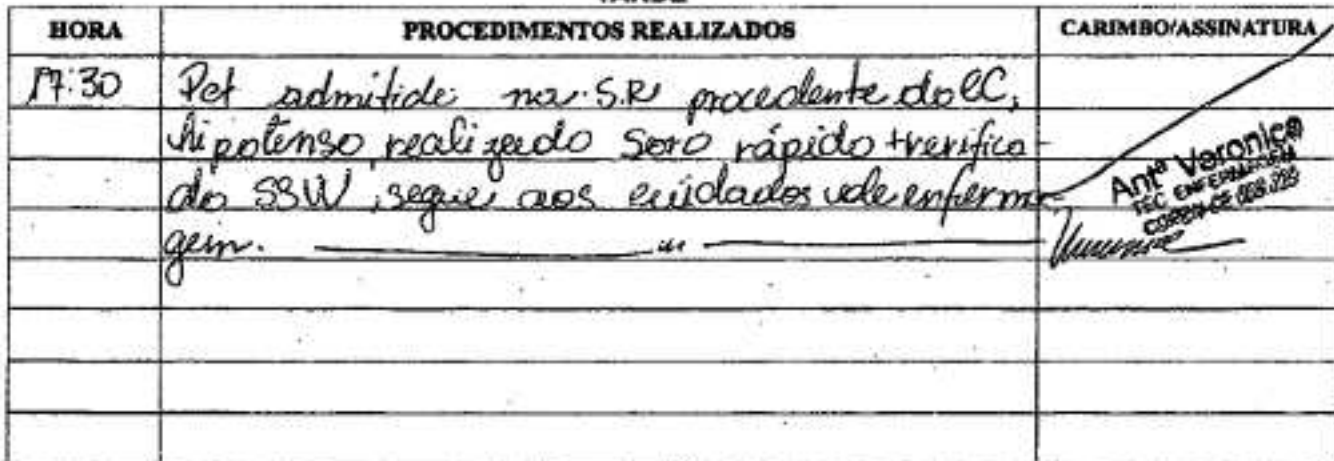 HORA PROCEDIMENTOS REALIZADOS CARIMBO/ASSINATURA
17:30 Pct admitido na S.R procedente do CC,
hipotenso, realizado soro rápido + verifica-
do SSVV, segue aos cuidados de enferma-
gem.
Antª Veronica
TEC ENFERMAGEM
COREN-CE